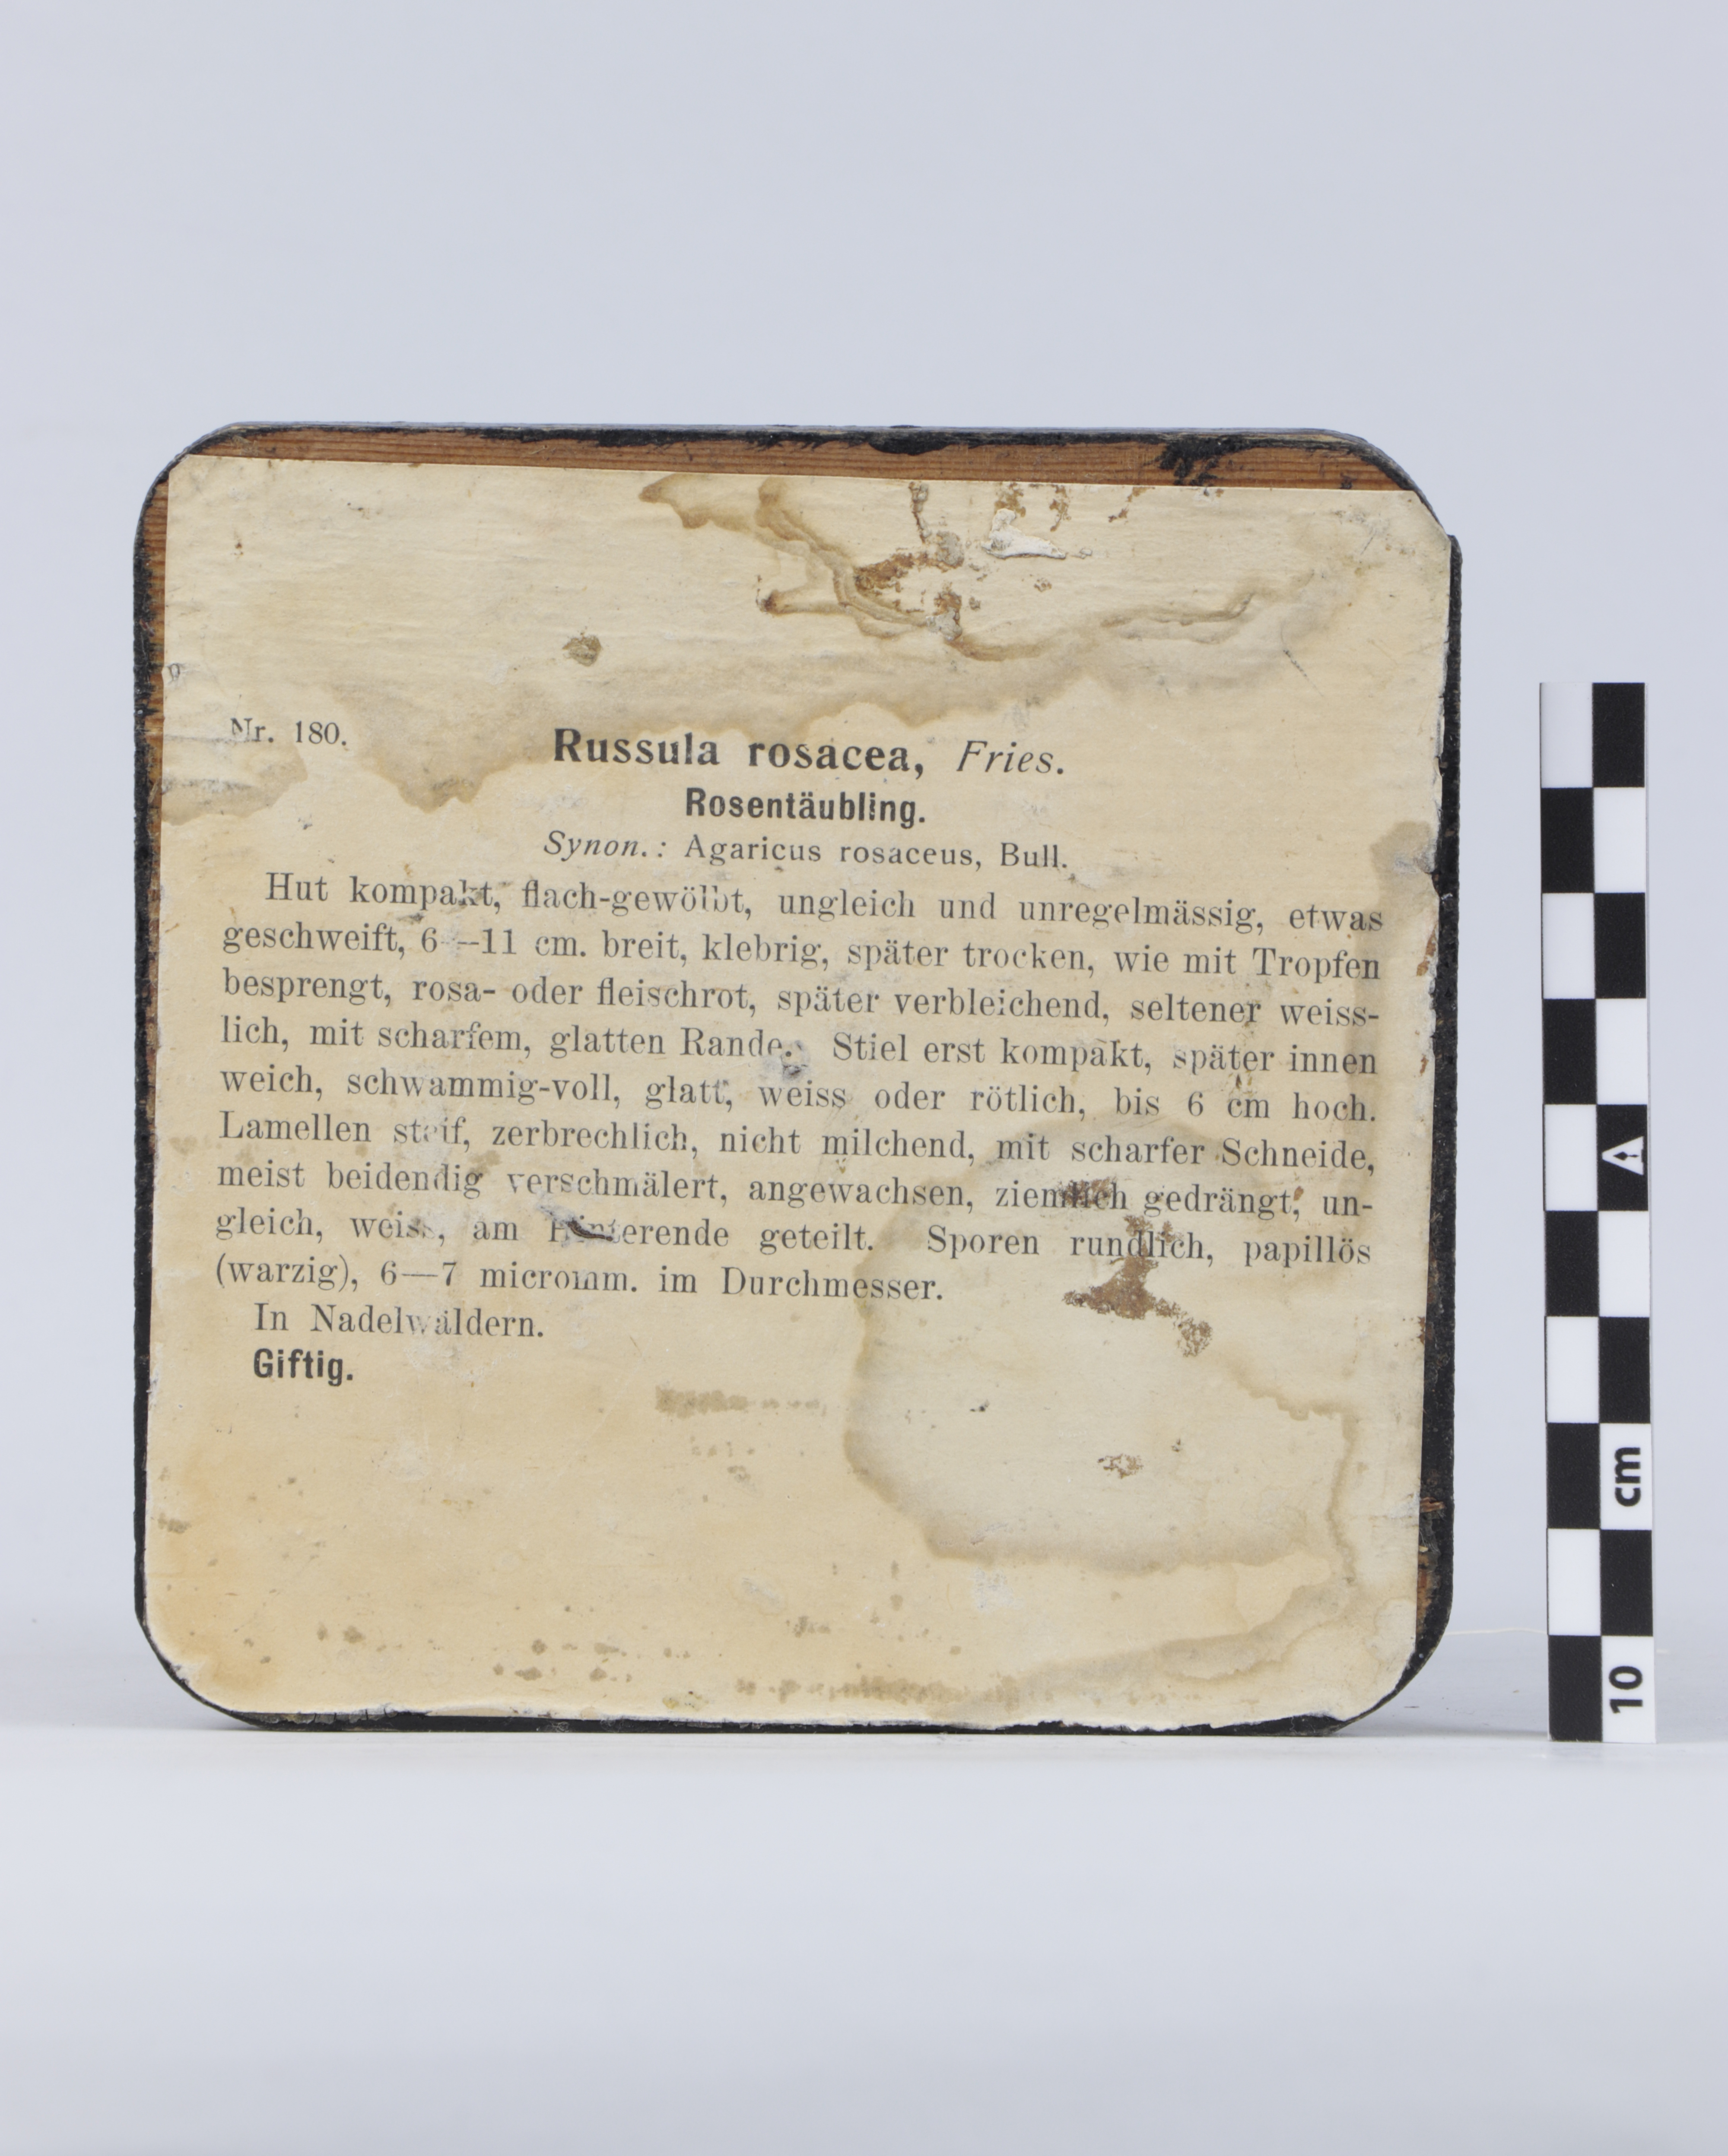 Nr. 180.
Russula rosacea, Fries.
Rosentäubling.
Synon.: Agaricus rosaceus, Bull.
Hut kompakt, flach-gewölbt, ungleich und unregelmässig, etwas
geschweift, 6—11 cm. breit, klebrig, später trocken, wie mit Tropfen
besprengt, rosa- oder fleischrot, später verbleichend, seltener weiss-
lich, mit scharfem, glatten Rande. Stiel erst kompakt, später innen
weich, schwammig-voll, glatt, weiss oder rötlich, bis 6 cm hoch.
Lamellen steif, zerbrechlich, nicht milchend, mit scharfer Schneide,
meist beidendig verschmälert, angewachsen, ziemlich gedrängt, un-
gleich, weiss, am Hinterende geteilt. Sporen rundlich, papillös
(warzig), 6—7 micromm. im Durchmesser.
In Nadelwäldern.
Giftig.
cm
10